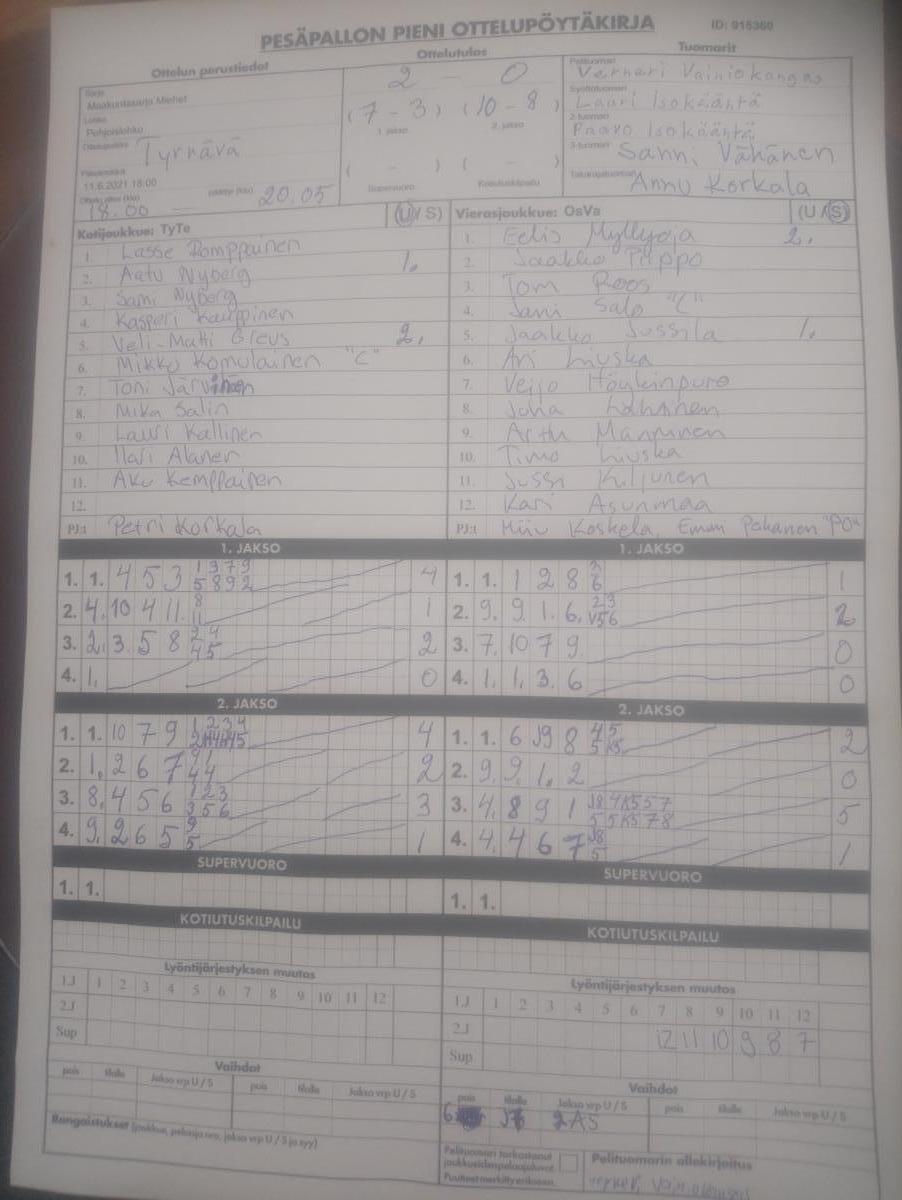 PESÄPALLON PIENI OTTELUPÖYTÄKIRJA ID: 915360
Ottelun perustiedot Ottelutulos Tuomarit
Sarja
Maakuntasarja Miehet
Lohko
Pohjoislohko
Ottelupaikka Tyrnävä
Päivämäärä
11.6.2021 18:00
Ottelu alkoi (klo) 18.00 — päättyi (klo) 20.05
2 - 0
(7 - 3) (10 - 8)
1. jakso 2. jakso
( - ) ( - )
Supervuoro Kotiutuskilpailu
Pelituomari Verneri Vainiokangas
Syöttötuomari Lauri Isokääntä
2-tuomari Paavo Isokääntä
3-tuomari Sanni Vähänen
Takarajatuomari Annu Korkala
Kotijoukkue: TyTe (U / S)
1. Lasse Romppainen
2. Aatu Nyberg 1.
3. Sami Nyberg
4. Kasperi Kauppinen
5. Veli-Matti Greus 2.
6. Mikko Komulainen "C"
7. Toni Järvinen
8. Mika Salin
9. Lauri Kallinen
10. Ilari Alanen
11. Aku Kemppainen
12.
PJ:t Petri Korkala
Vierasjoukkue: OsVa (U / S)
1. Eelis Myllyoja 2.
2. Jaakko Piippo
3. Tom Roos
4. Jani Salo "C"
5. Jaakko Jussila 1.
6. Ari Liuska
7. Veijo Höykinpuro
8. Juha Lohninen
9. Arttu Manninen
10. Timo Liuska
11. Jussi Kiljunen
12. Kari Asunmaa
PJ:t Koskela, Pohanen "PO"
1. JAKSO
1. 1. 4 5 3 1 3 7 9 4
5 8 9 2
2. 4. 10 4 11. 8 1
11
3. 2. 3. 5 8 2 4 2
4 5
4. 1. 0
1. JAKSO
1. 1. 1 2 8 1
6
2. 9. 9. 1. 6. 2 3 2
V5 6
3. 7. 10 7 9. 0
4. 1. 1. 3. 6 0
2. JAKSO
1. 1. 10 7 9 1 2 3 4 4
2. 1. 2 6 7 9 1 2
4 4
3. 8. 4 5 6 1 2 3 3
3 5 6
4. 9. 2 6 5 9 1
5
2. JAKSO
1. 1. 6 J9 8 4 5 2
5 K5
2. 9. 9. 1. 2 0
3. 4. 8 9 1 J8 4 K5 5 7 5
5 5 K5 7 8
4. 4. 4 6 7 J8 1
5
SUPERVUORO
1. 1.
SUPERVUORO
1. 1.
KOTIUTUSKILPAILU
KOTIUTUSKILPAILU
Lyöntijärjestyksen muutos
1.J 1 2 3 4 5 6 7 8 9 10 11 12
2.J
Sup
Lyöntijärjestyksen muutos
1.J 1 2 3 4 5 6 7 8 9 10 11 12
2.J 12 11 10 9 8 7
Sup
Vaihdot
pois tilalle Jakso vrp U / S pois tilalle Jakso vrp U / S
Rangaistukset (joukkue, pelaaja nro, jakso vrp U / S ja syy)
Vaihdot
pois tilalle Jakso vrp U / S pois tilalle Jakso vrp U / S
6 J6 2AS
Pelituomari tarkastanut
joukkueiden pelaajaluvat.
Puutteet merkitty erikseen.
Pelituomarin allekirjoitus